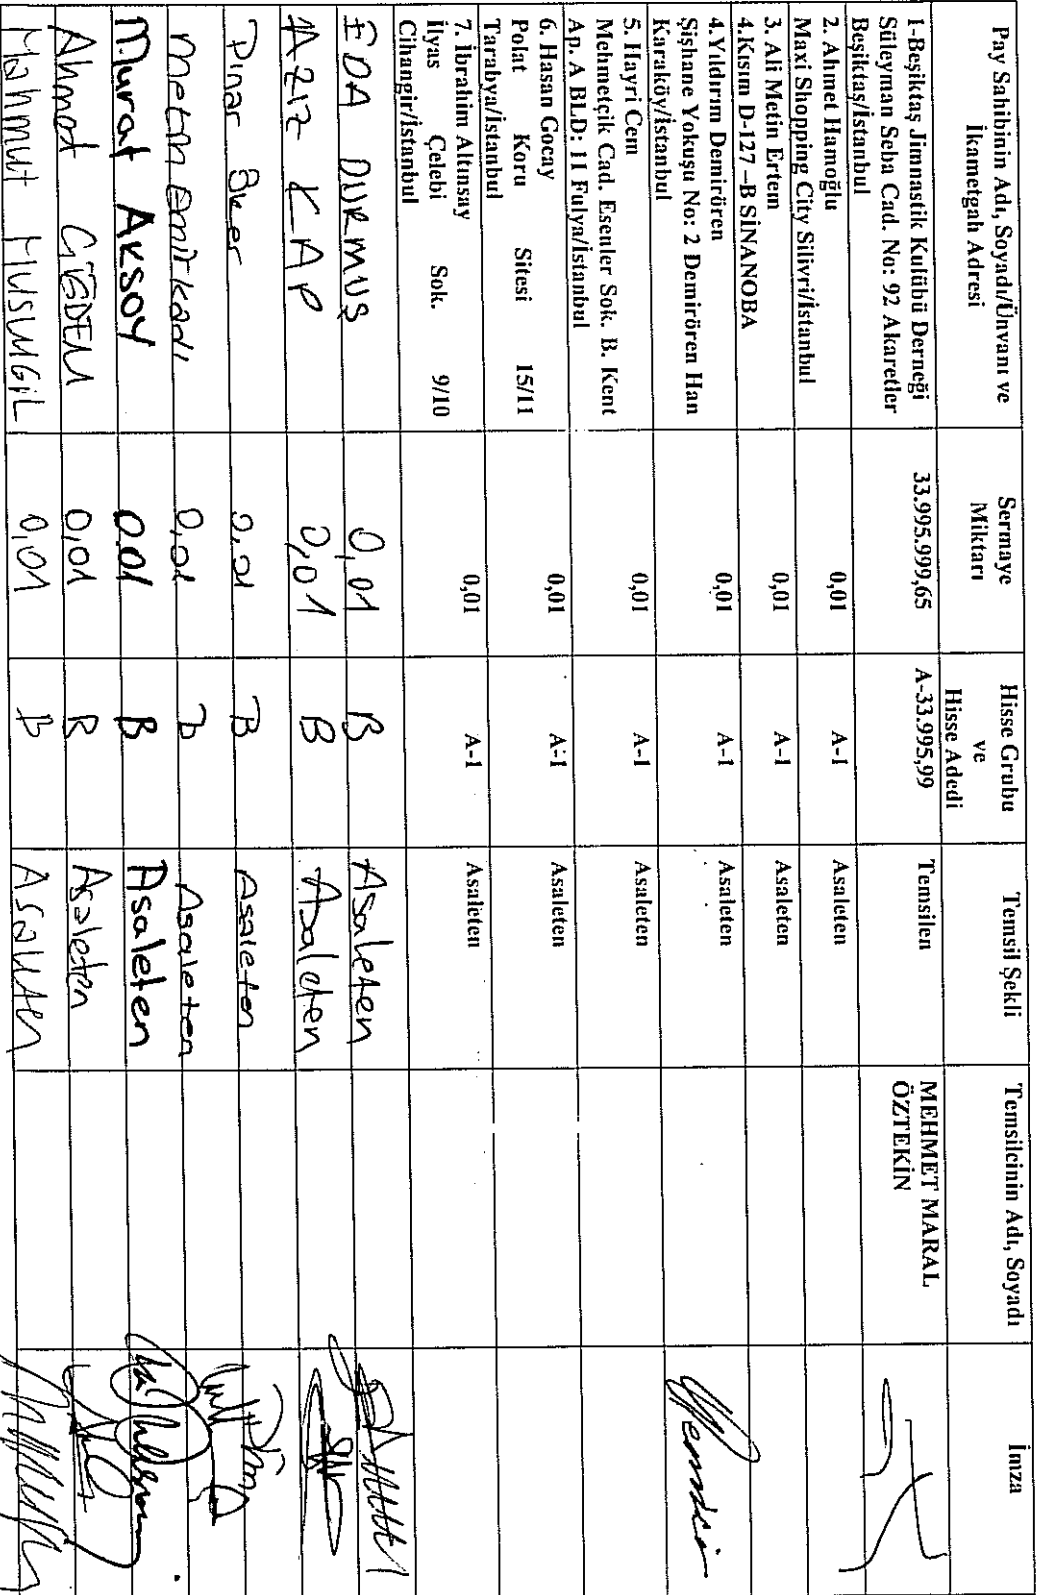 Pay Sahibinin Adı, Soyadı/Ünvanı ve
İkametgah Adresi
Sermaye
Miktarı
Hisse Grubu
ve
Hisse Adedi
Temsil Şekli
Temsilcinin Adı, Soyadı
İmza
1-Beşiktaş Jimnastik Kulübü Derneği
Süleyman Seba Cad. No: 92 Akaretler
Beşiktaş/İstanbul
33.995.999,65
A-33.995,99
Temsilen
MEHMET MARAL
ÖZTEKİN
2. Ahmet Hamoğlu
Maxi Shopping City Silivri/İstanbul
0,01
A-1
Asaleten
3. Ali Metin Ertem
4.Kısım D-127 –B SİNANOBA
0,01
A-1
Asaleten
4.Yıldırım Demirören
Şişhane Yokuşu No: 2 Demirören Han
Karaköy/İstanbul
0,01
A-1
Asaleten
5. Hayri Cem
Mehmetçik Cad. Esenler Sok. B. Kent
Ap. A BLD: 11 Fulya/İstanbul
0,01
A-1
Asaleten
6. Hasan Gocay
Polat Koru Sitesi 15/11
Tarabya/İstanbul
0,01
A-1
Asaleten
7. İbrahim Altınsay
İlyas Çelebi Sok. 9/10
Cihangir/İstanbul
0,01
A-1
Asaleten
EDA DURMUŞ 0,01 B Asaleten
AZİZ KAP 0,01 B Asaleten
Pınar 0,01 B Asaleten
Metin 0,01 B Asaleten
Murat AKSOY 0.01 B Asaleten
Ahmet ÇİĞDEM 0,01 B Asaleten
Mahmut 0,01 B Asaleten